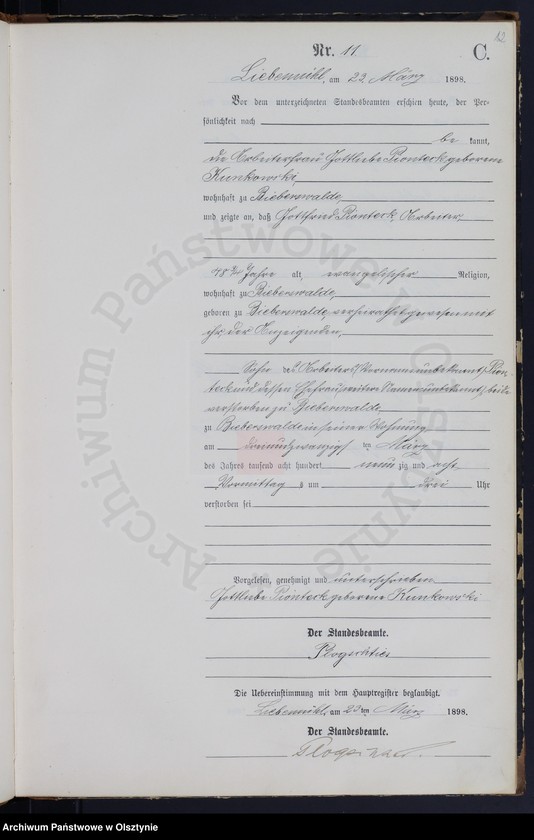 12
Nr. 11
C.
Liebemühl, am 22 März 1898.
Vor dem unterzeichneten Standesbeamten erschien heute, der Per-
sönlichkeit nach
be kannt,
die Arbeiterfrau Gottliebe Pionteck geborene
Kunkowski,
wohnhaft zu Bieberswalde,
und zeigte an, daß Gottfried Pionteck, Arbeiter,
48 Jahre alt, evangelischer Religion,
wohnhaft zu Bieberswalde,
geboren zu Bieberswalde, verheirathet gewesen mit
ihr, der Anzeigenden,
Sohn des Arbeiters (Vorname unbekannt) Pion-
teck und dessen Ehefrau, Namen unbekannt, beide
verstorben zu Bieberswalde
zu Bieberswalde in seiner Wohnung
am ten März
des Jahres tausend acht hundert neun zig und acht
Vormittag s um drei Uhr
verstorben sei
Vorgelesen, genehmigt und unterschrieben
Gottliebe Pionteck geborene Kunkowski
Der Standesbeamte.
Die Uebereinstimmung mit dem Hauptregister beglaubigt.
Liebemühl, am 23 ten März 1898.
Der Standesbeamte.
Archiwum Państwowe w Olsztynie
Archiwum Państwowe w Olsztynie